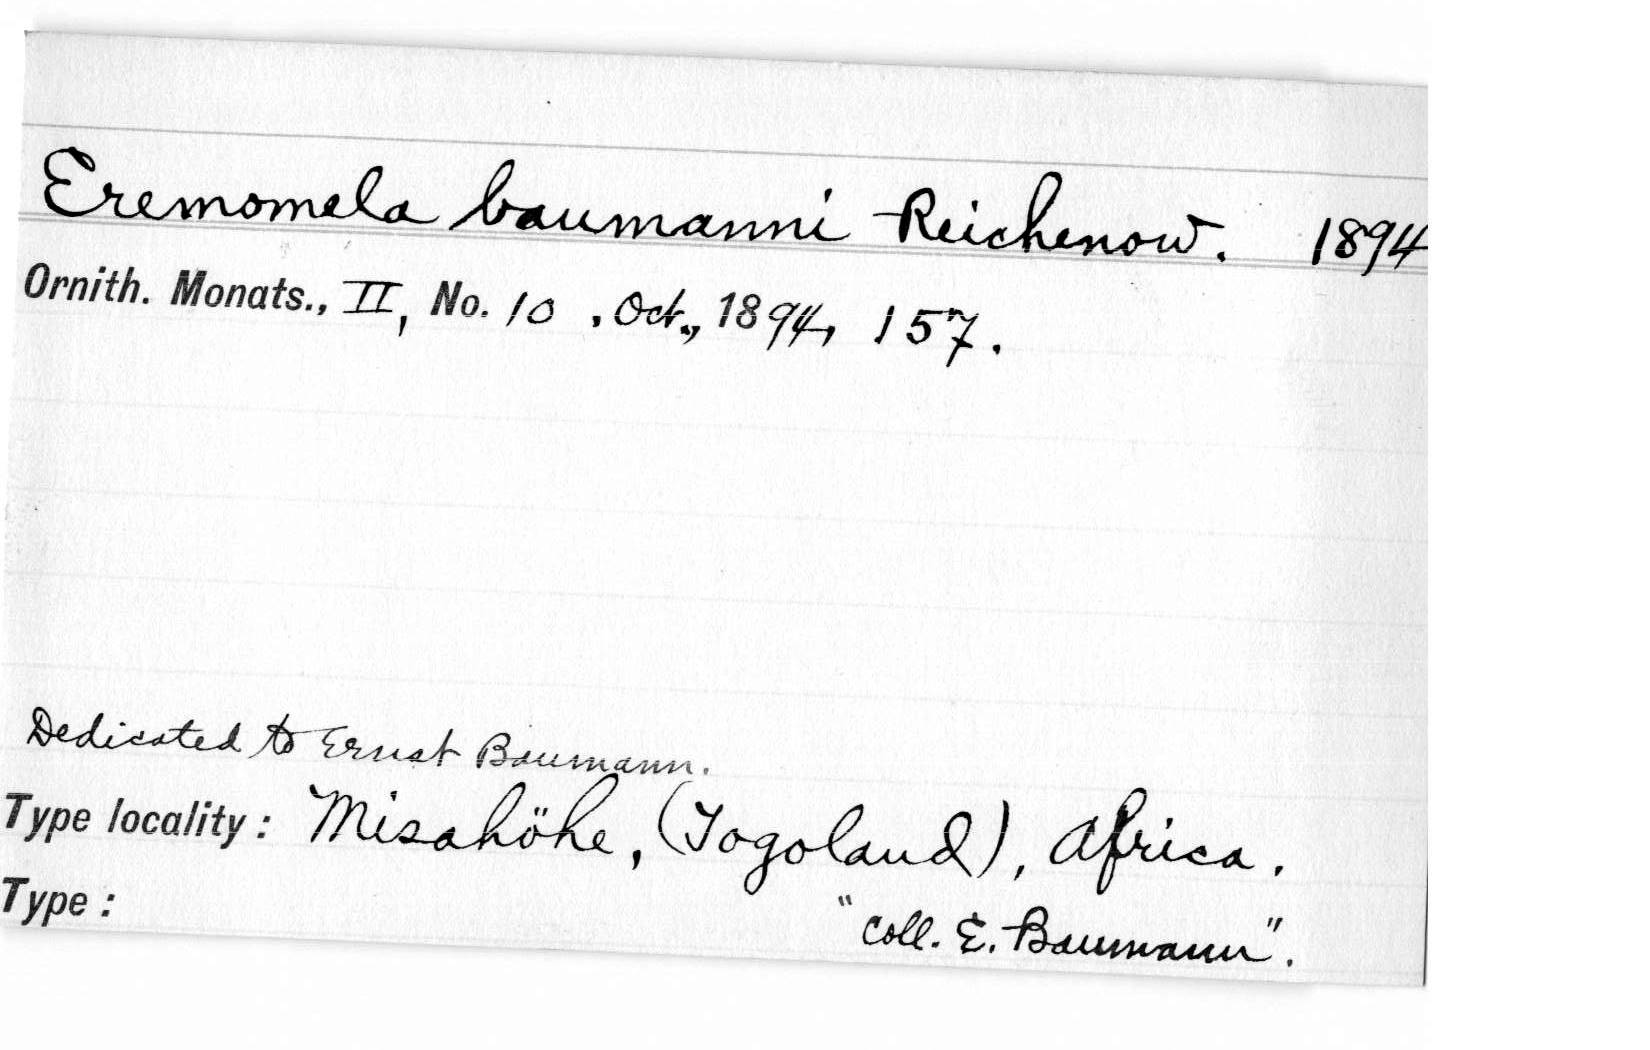 Eremomela baumanni Reichenow. 1894
Ornith. Monats., II, No. 10 , Oct., 1894, 157.
Dedicated to Ernst Baumann.
Type locality : Misahöhe, (Togoland), Africa.
Type : "Coll. E. Baumann".